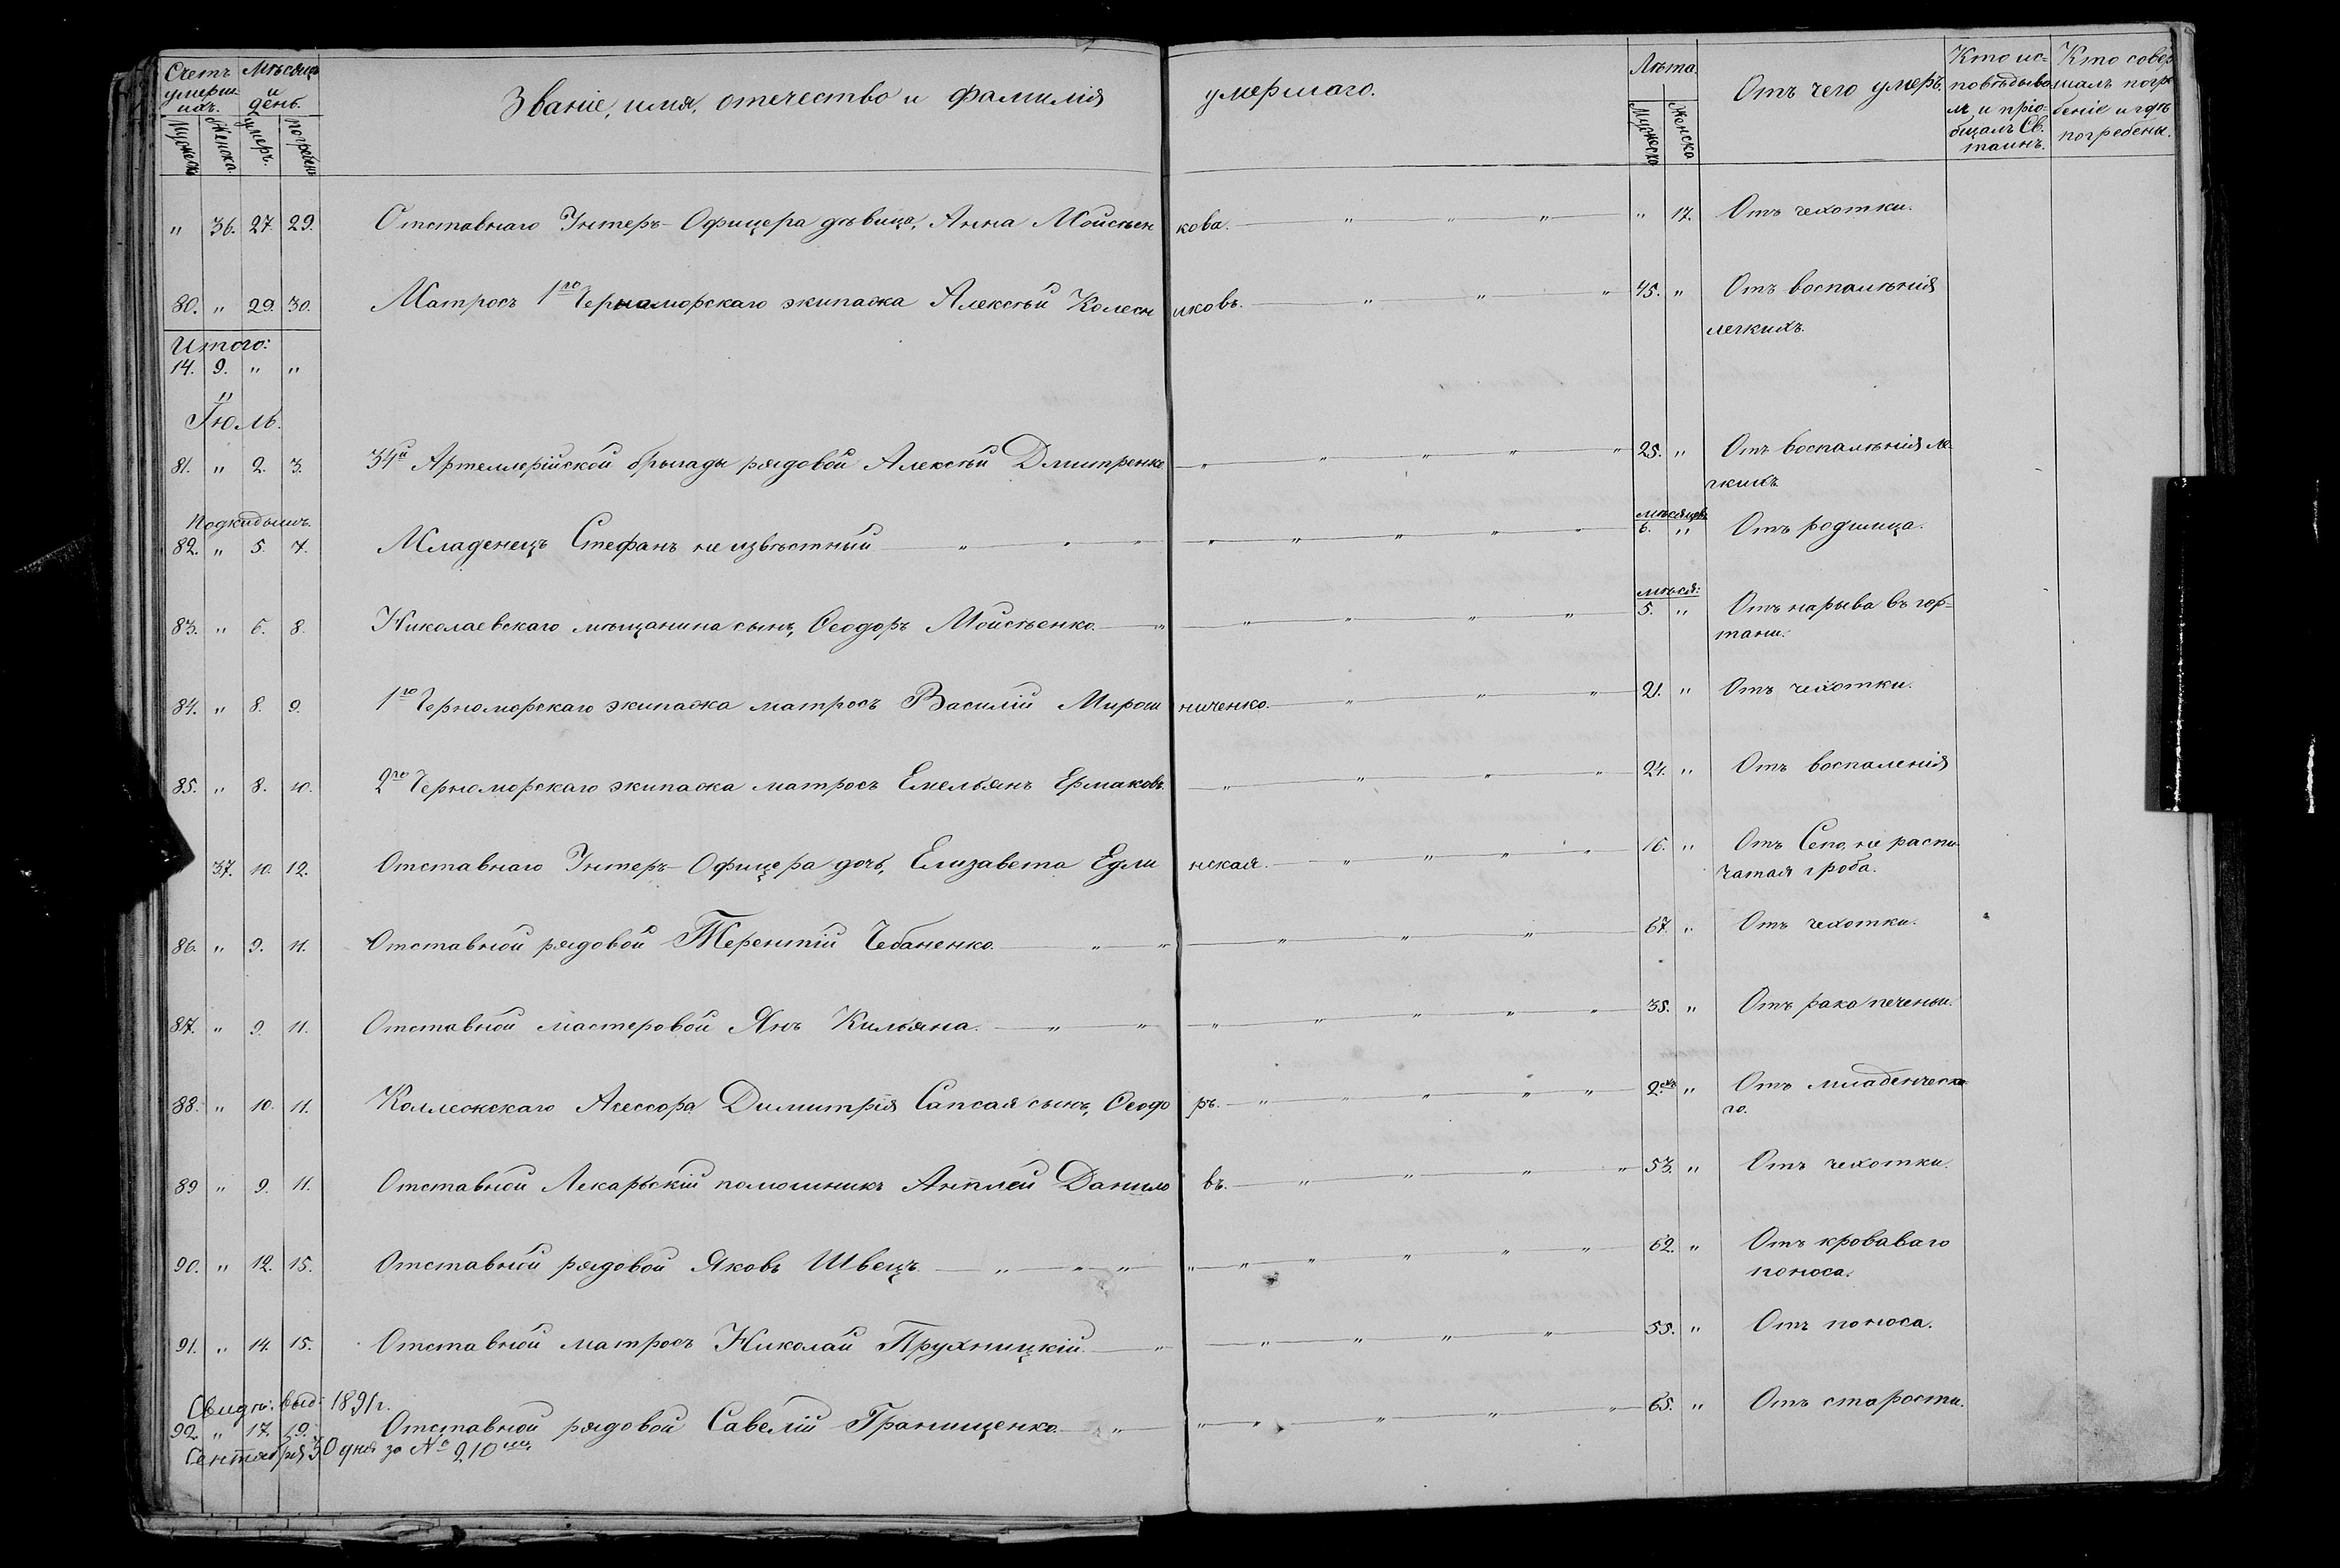 Счетъ умершихъ. Мѣсяцъ и день. Званіе, имя, отечество и фамилія умершаго. Лѣта. Отъ чего умеръ. Кто исповѣдывалъ и пріобщалъ Св. таинъ. Кто совершалъ погребеніе и гдѣ погребены.
Мужеска Женска умеръ. погребенъ Мужеска Женска
" 36. 27. 29. Отставнаго Унтеръ-Офицера дѣвица, Анна Мойсѣенкова. " " " " 17. Отъ чехотки.
80. " 29. 30. Матросъ 1го Черноморскаго экипажа Алексѣй Колесниковъ. " " " 45. " Отъ воспалѣнія
легкихъ.
Итого:
14. 9. " "
"
Іюль.
81. " 2. 3. 34й Артеллерійской бригады рядовой Алексѣй Дмитренко " " " " " 25. " Отъ воспалѣнія ле-
гкихъ.
Подкидышъ. мѣсяцевъ
82. " 5. 7. Младенецъ Стефанъ не извѣстный " " " " " " " " 6. " Отъ родимца.
мѣся:
83. " 6. 8. Николаевскаго мѣщанина сынъ, Ѳеодоръ Мойсѣенко. " " " " " 5. " Отъ нарыва въ гор-
тани.
84. " 8. 9. 1го Черноморскаго экипажа матросъ Василій Мирошниченко. " " " 21. " Отъ чехотки.
85. " 8. 10. 2го Черноморскаго экипажа матросъ Емельянъ Ермаковъ. " " " " 24. " Отъ воспаленія
37. 10. 12. Отставнаго Унтеръ-Офицера дочь, Елизавета Едлинская. " " " " 16. " Отъ не распе-
чатая гроба.
86. " 9. 11. Отставной рядовой Терентій Чебаненко. " " " " " 67. " Отъ чехотки.
87. " 9. 11. Отставной мастеровой Янъ Кильяна. " " " " " " " 35. " Отъ рака печени.
88. " 10. 11. Коллежскаго Асессора Димитрія Сапсая сынъ, Ѳеодоръ. " " " " " 2. " Отъ младенческа-
го.
89 " 9. 11. Отставной Лекарьскій помошникъ Даниловъ. " " " " 53. " Отъ чехотки.
90. " 12. 15. Отставной рядовой Яковъ Швецъ. " " " " " " " " " 62. " Отъ кроваваго
поноса.
91. " 14. 15. Отставной матросъ Николай Трухницкій. " " " " " 55. " Отъ поноса.
Свидѣ: выд: 1891г.
92. " 17. 19. Отставной рядовой Савелій Гранищенко. " " " " " " 65. " Отъ старости.
Сентября 30 дня за № 210